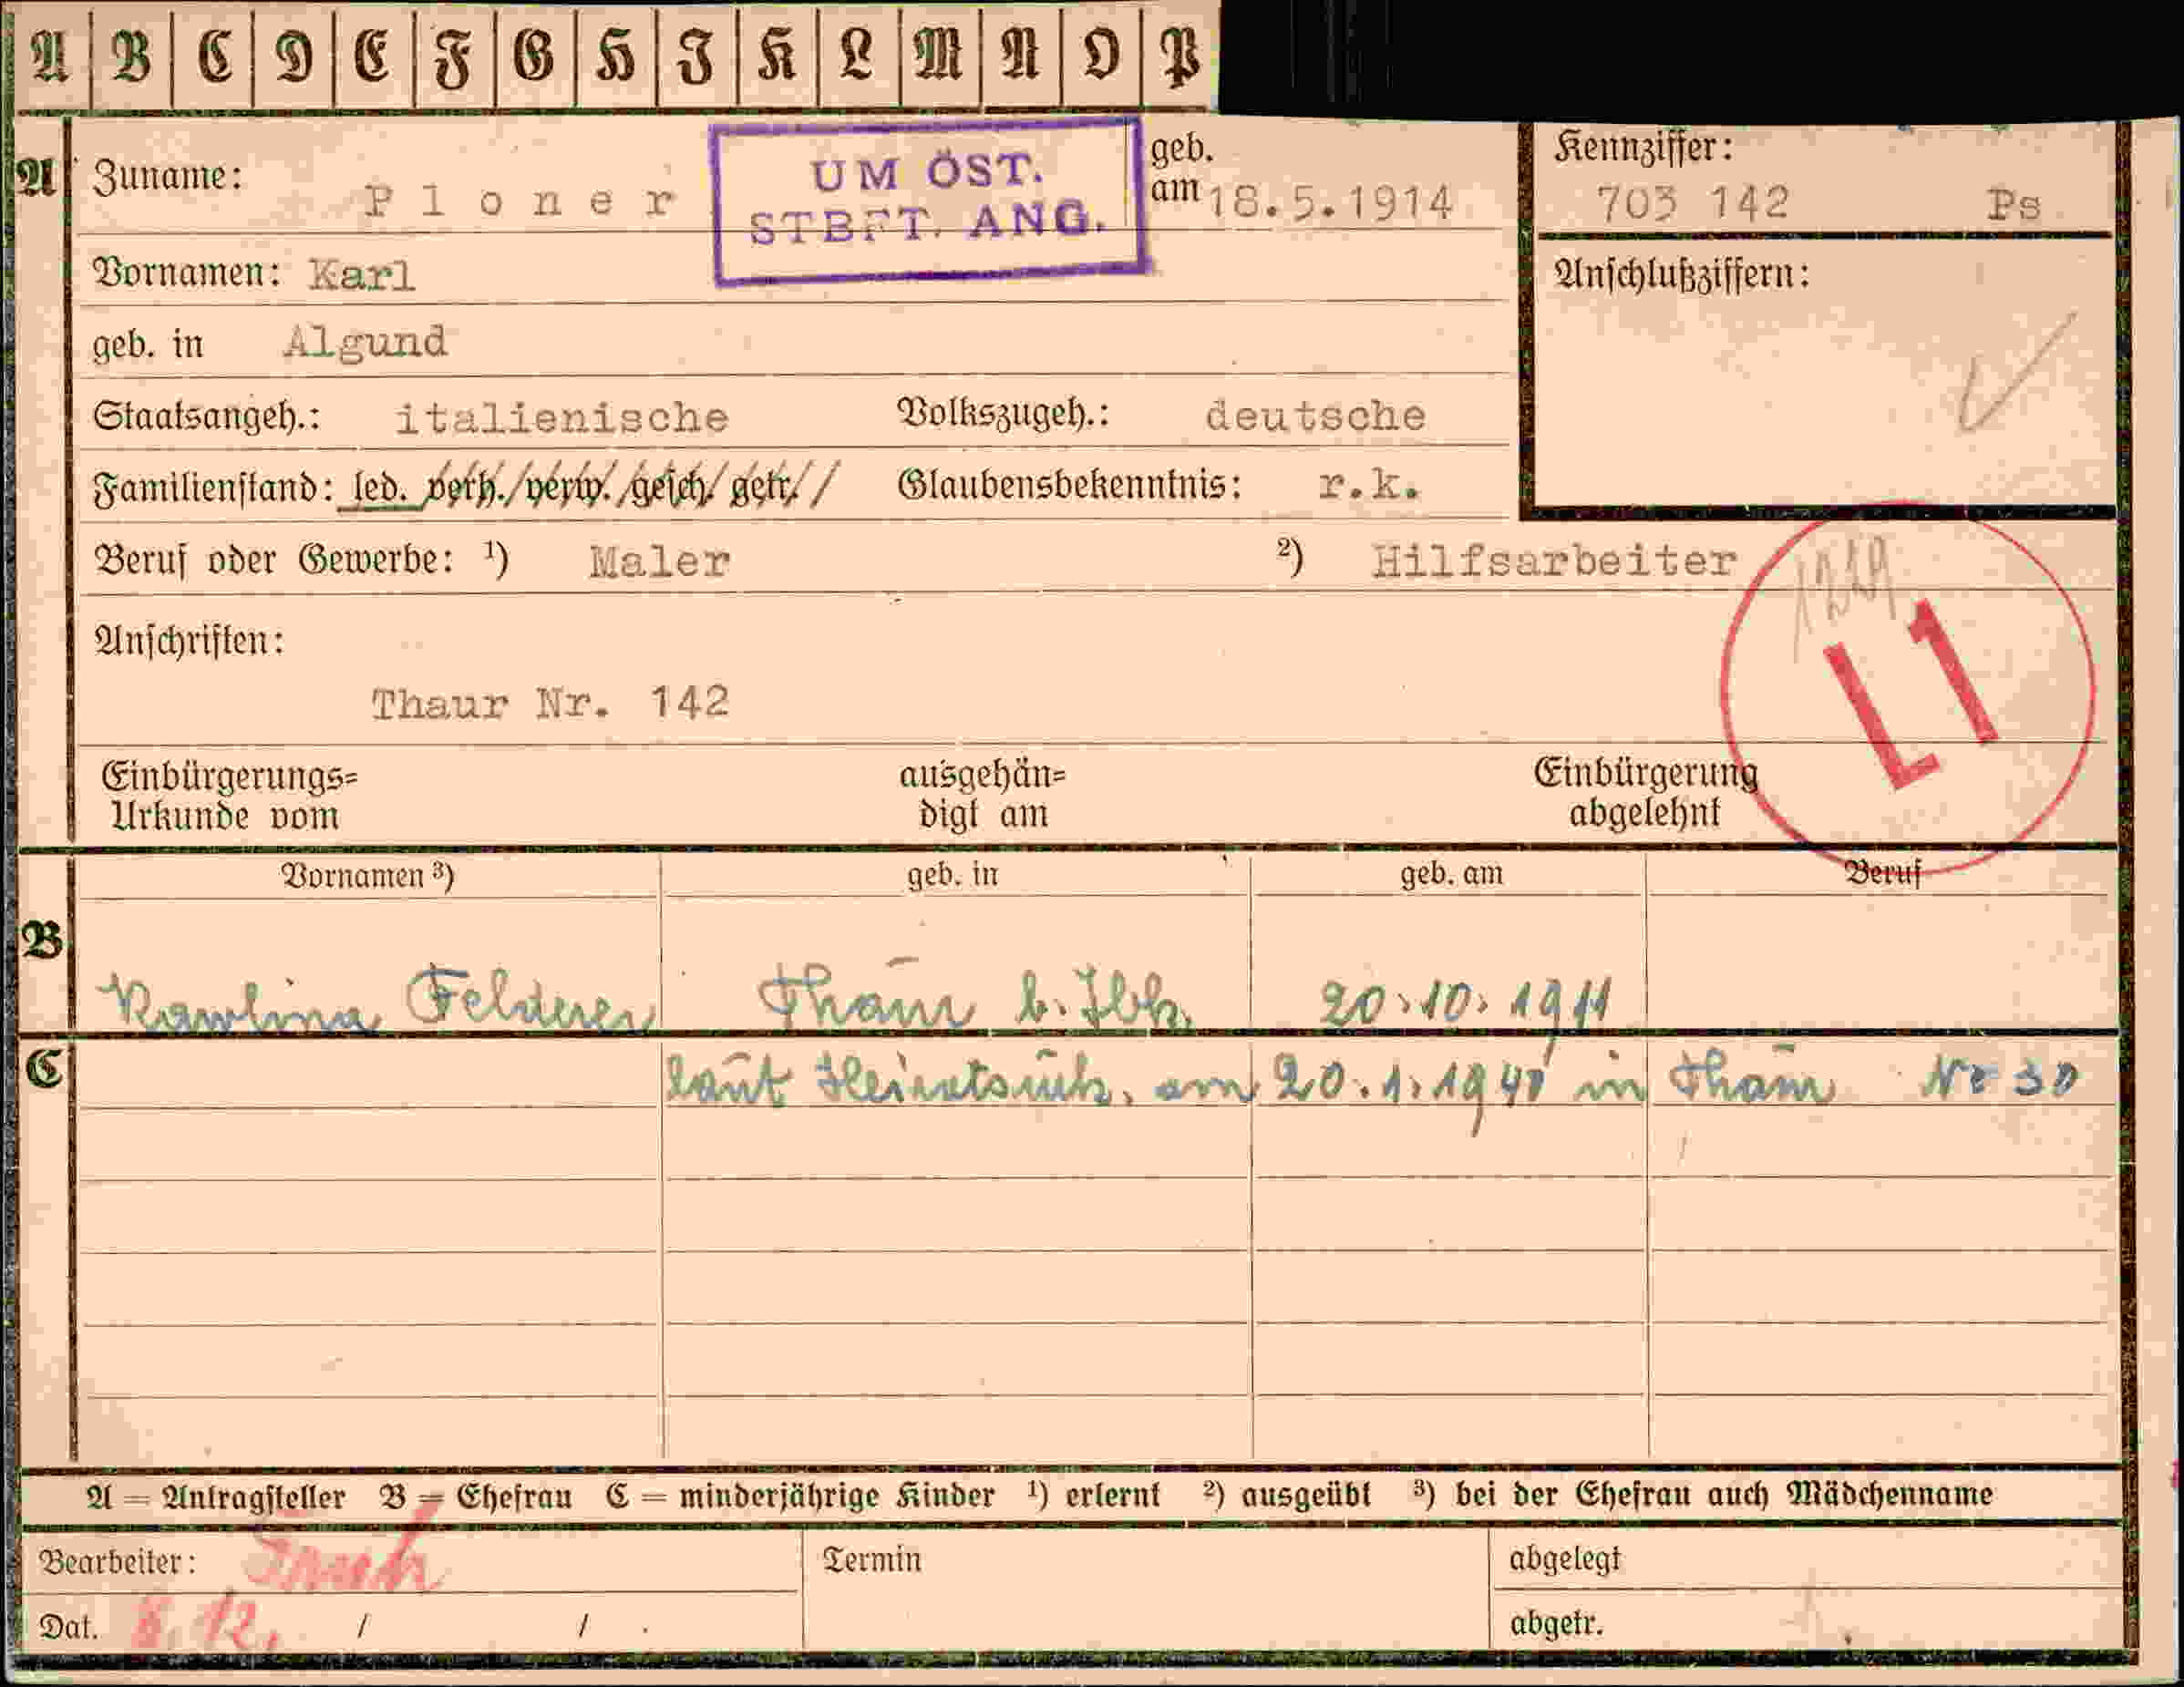 A B C D E F G H I K L M N O P
A Zuname: Ploner geb. am 18.5.1914
UM ÖST.
STBFT. ANG.
Kennziffer:
703 142 Ps
Vornamen: Karl
Anschlußziffern:
geb. in Algund
Staatsangeh.: italienische Volkszugeh.: deutsche
Familienstand: led. verh./verw./gesch/getr./ Glaubensbekenntnis: r.k.
Beruf oder Gewerbe: ¹) Maler ²) Hilfsarbeiter
L1
Anschriften:
Thaur Nr. 142
Einbürgerungs= Urkunde vom
ausgehän= digt am
Einbürgerung abgelehnt
Vornamen ³) geb. in geb. am Beruf
B Karolina Felderer Thaur b. Ibk. 20.10.1911
C laut Heiratsurk. am 20.1.1940 in Thaur Nr 30
A = Antragsteller B = Ehefrau C = minderjährige Kinder ¹) erlernt ²) ausgeübt ³) bei der Ehefrau auch Mädchenname
Bearbeiter: Termin abgelegt
Dat. 8.12. / / abgetr.